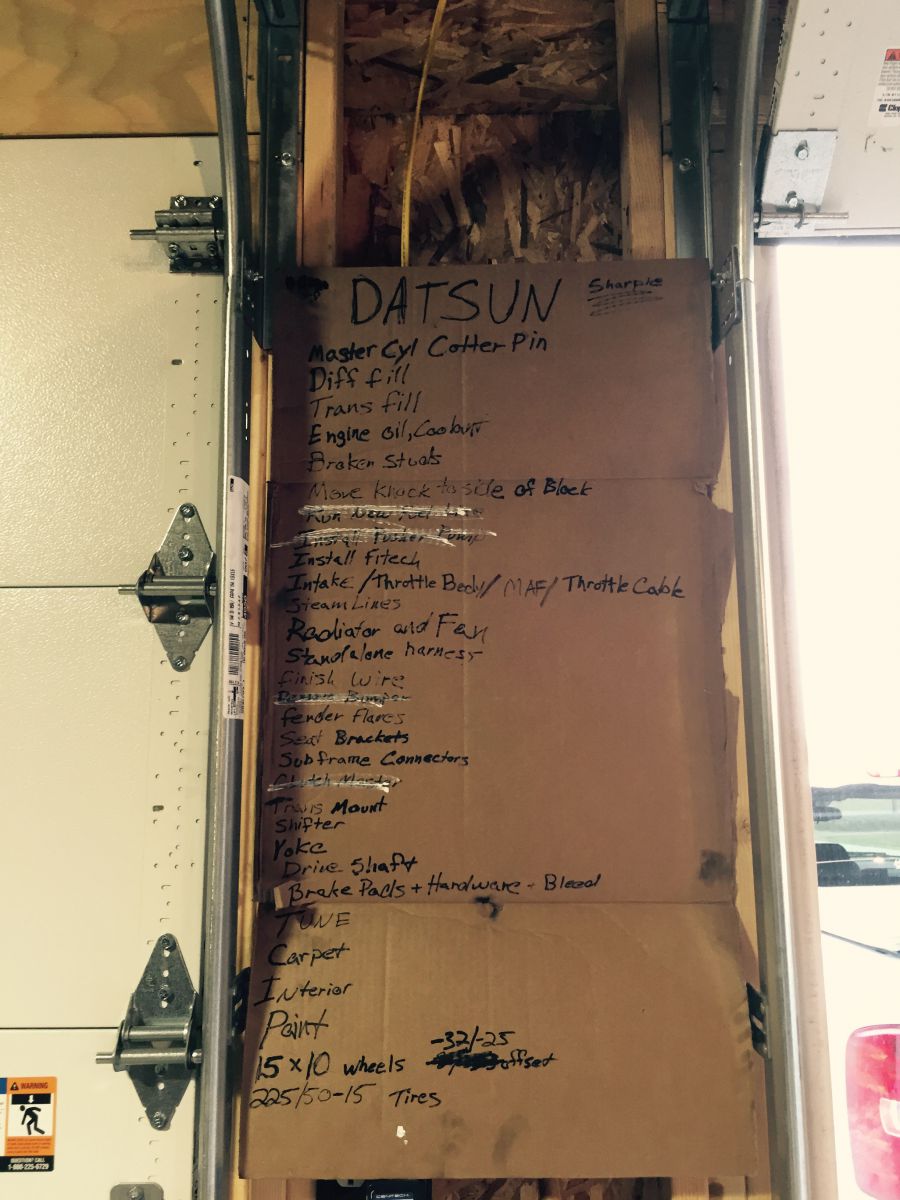 DATSUN
Sharpie
Master Cyl Cotter Pin
Diff fill
Trans fill
Engine Oil, Coolant
Broken Studs
Move Knock to side of Block
Run New Fuel Line
Install Pusher Pump
Install Fitech
Intake/Throttle Body/MAF/Throttle Cable
Steam Lines
Radiator and Fan
Standalone harness
finish wire
Remove Bumper
fender flares
Seat Brackets
Subframe Connectors
Clutch Master
Trans Mount
Shifter
Yoke
Drive Shaft
Brake Pads + Hardware + Bleed
TUNE
Carpet
Interior
Paint
-32/-25
15x10 wheels offset
225/50-15 Tires
WARNING
QUESTION? CALL
1-800-225-6729